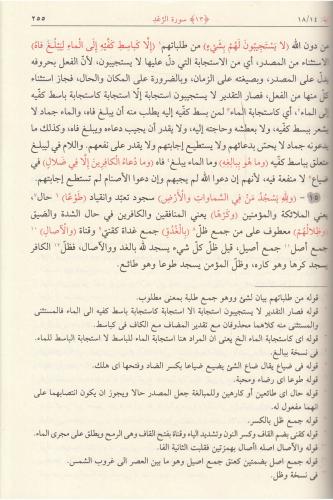 ١٨/١٤ ﴿١٣﴾ سورة الرّعد ٢٥٥
من دون الله (لا يَسْتَجِيبُونَ لَهُمْ بِشَيْءٍ) من طلباتهم (إِلَّا كَبَاسِطِ كَفَّيْهِ إِلَى الْمَاءِ لِيَبْلُغَ فَاهُ)
الاستثناء من المصدر، أي من الاستجابة التي دلّ عليها لا يستجيبون، لأنّ الفعل بحروفه
يدلّ على المصدر، وبصيغته على الزمان، وبالضرورة على المكان والحال، فجاز استثناء
كلّ منها من الفعل، فصار التقدير لا يستجيبون استجابة إلّا استجابة كاستجابة باسط كفّيه
إلى الماء، أي كاستجابة الماء لمن بسط كفّيه إليه يطلب منه أن يبلغ فاه، والماء جماد لا
يشعر ببسط كفّيه، ولا بعطشه وحاجته إليه، ولا يقدر أن يجيب دعاءه ويبلغ فاه، وكذلك ما
يدعونه جماد لا يحسّ بدعائهم ولا يستطيع إجابتهم ولا يقدر على نفعهم. واللام في ليبلغ
متعلق بباسط كفّيه (وما هُو بِبالِغِهِ) وما الماء ببالغ فاه (وَما دُعاءُ الْكافِرِينَ إِلَّا فِي ضَلالٍ) في
ضياع لا منفعة فيه، لأنهم إن دعوا الله لم يجبهم وإن دعوا الأصنام لم تستطع إجابتهم.
١٥ - (وَلِلَّهِ يَسْجُدُ مَنْ فِي السَّماواتِ وَالْأَرْضِ) سجود تعبّد وانقياد (طَوْعًا) حال،
يعني الملائكة والمؤمنين (وَكَرْهًا) يعني المنافقين والكافرين في حال الشدة والضيق
(وَظِلالُهُمْ) معطوف على من جمع ظلّ (بِالْغُدُوِّ) جمع غداة كقنيّ وقناة (وَالْآصالِ)
جمع أصل جمع أصيل، قيل ظلّ كلّ شيء يسجد لله بالغدو والآصال، فظلّ الكافر
يسجد كرهاً وهو كاره، وظلّ المؤمن يسجد طوعا وهو طائع.
قوله من طلباتهم بيان لشئ ووهو جمع طلبة بمعنى مطلوب.
قوله فصار التقدير لا يستجيبون استجابة الا استجابة كاستجابة باسط كفيه الى الماء فالمستثنى
والمستثنى منه كلاهما محذوفان مع تقدير المضاف مع الكاف فى كباسط.
قوله اى كاستجابة الماء الخ يعنى ان المراد هنا استجابة الماء للباسط لا استجابة الباسط للماء.
فى نسخة ببالغ.
قوله فى ضياع يقال ضاع الشئ يضيع ضياعا بكسر الضاد وفتحها اى هلك.
قوله طوعا اى رضاء ومحبة.
قوله حال اى طائعين أو كارهين وللمبالغة جعل المصدر حالا ويجوز ان يكون انتصابهما على
انهما مفعول له.
قوله جمع ظل بالكسر.
قوله كقنى بضم القاف وكسر النون وتشديد الياء وقناة بفتح القاف وهى الرمح ويطلق على مجرى الماء.
قوله والآصال اصله أأصال بهمزتين فقلبت الثانية الفا.
قوله جمع اصل بضمتين كعنق جمع اصيل وهو ما بين العصر الى غروب الشمس.
فى نسخة وظل.